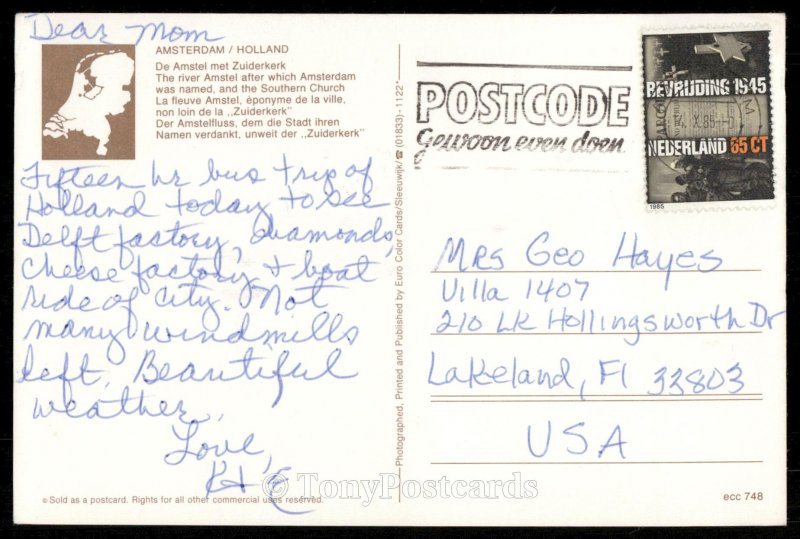 Dear Mom
AMSTERDAM / HOLLAND
De Amstel met Zuiderkerk
The river Amstel after which Amsterdam
was named, and the Southern Church
La fleuve Amstel, éponyme de la ville,
non loin de la ,,Zuiderkerk"
Der Amstelfluss, dem die Stadt ihren
Namen verdankt, unweit der ,,Zuiderkerk"
Fifteen hr bus trip of
Holland today to see
Delft factory, diamonds,
cheese factory + boat
ride of city. Not
many windmills
left. Beautiful
weather.
Love,
© Sold as a postcard. Rights for all other commercial uses reserved.
Photographed, Printed and Published by Euro Color Cards/Sleeuwijk/☎ (01833)-1122*
POSTCODE
Gewoon even doen
BEVRIJDING 1945
NEDERLAND 65 CT
1985
Mrs Geo Hayes
Villa 1407
210 Lk Hollingsworth Dr
Lakeland, Fl 33803
USA
© TonyPostcards
ecc 748